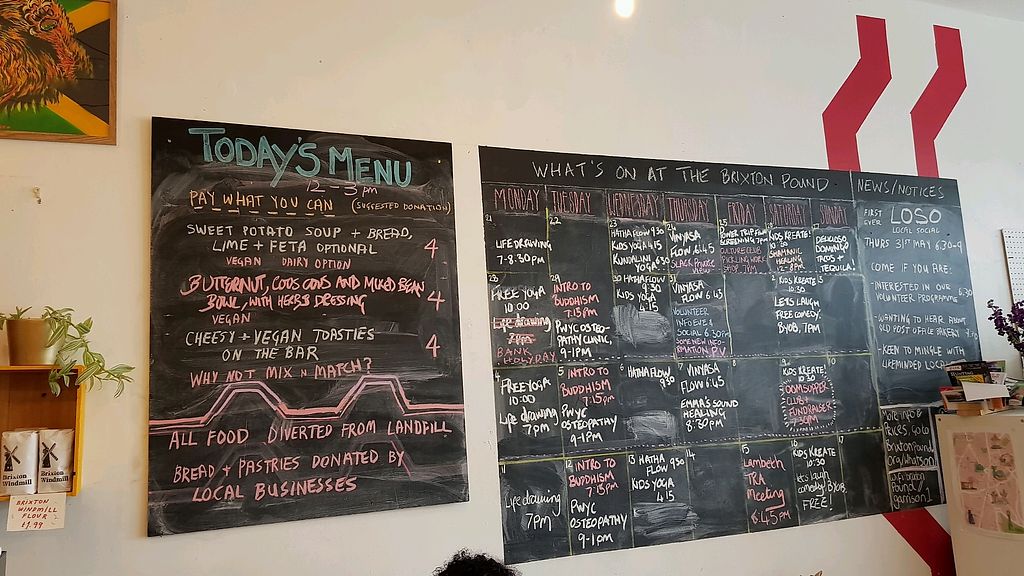 TODAY'S MENU
12 - 3 pm
PAY WHAT YOU CAN (SUGGESTED DONATION)
SWEET POTATO SOUP + BREAD,
LIME + FETA OPTIONAL 4
VEGAN DAIRY OPTION
BUTTERNUT, COUS COUS AND MIXED BEAN
BOWL, WITH HERB DRESSING 4
VEGAN
CHEESY + VEGAN TOASTIES
ON THE BAR 4
WHY NOT MIX N MATCH?
ALL FOOD DIVERTED FROM LANDFILL
BREAD + PASTRIES DONATED BY
LOCAL BUSINESSES
Brixton
Windmill
Brixton
Windmill
BRIXTON
WINDMILL
FLOUR
£1.99
WHAT'S ON AT THE BRIXTON POUND
MONDAY TUESDAY WEDNESDAY THURSDAY FRIDAY SATURDAY SUNDAY
21
LIFE DRAWING
7-8:30PM
22
23
HATHA FLOW 9:30
KIDS YOGA 4:15
KUNDALINI
YOGA 6:30
24
VINYASA
FLOW 6:45
25
POWER TRIP FILM
SCREENING 7PM
CULTURE CLUB
PICKLING WORK
SHOP 7PM
KIDS KREATE!
10:30
SHAMANIC
HEALING
12-8PM
DELICIOUS
DOMINGO
TACOS +
TEQUILA!
28
FREE YOGA
10:00
Life drawing
BANK
HOLIDAY
29
INTRO TO
BUDDHISM
7:15PM
PWYC OSTEO-
PATHY CLINIC,
9-1PM
30 HATHA FLOW
9:30
KIDS YOGA
4:15
VINYASA
FLOW 6:45
VOLUNTEER
INFO EVE &
SOCIAL 6:30PM
2
KIDS KREATE
10:30
LETS LAUGH
FREE COMEDY.
BYOB, 7PM
4
FREE YOGA
10:00
Life drawing
7PM
5
INTRO TO
BUDDHISM
7:15PM
PWYC
OSTEOPATHY
9-1PM
6
HATHA FLOW
9:30
7
VINYASA
FLOW 6:45
EMMA'S SOUND
HEALING
8:30PM
8
9
KIDS KREATE!
10:30
SUPPER
CLUB +
FUNDRAISER
7:30PM
10
11
Life drawing
7PM
12
INTRO TO
BUDDHISM
7:15PM
PWYC
OSTEOPATHY
9-1PM
13 HATHA
FLOW 9:30
KIDS YOGA
4:15
14
15
Lambeth
TRA
Meeting
6:45PM
16
KIDS KREATE
10:30
let's laugh
comedy BYOB
FREE!
17
NEWS/NOTICES
FIRST
EVER
LOSO
LOCAL SOCIAL
THURS 31ST MAY 6.30-9
COME IF YOU ARE:
- INTERESTED IN OUR
VOLUNTEER PROGRAMME 6.30
- WANTING TO HEAR ABOUT
OLD POST OFFICE BAKERY
- KEEN TO MINGLE WITH
LIKEMINDED LOCALS
More info &